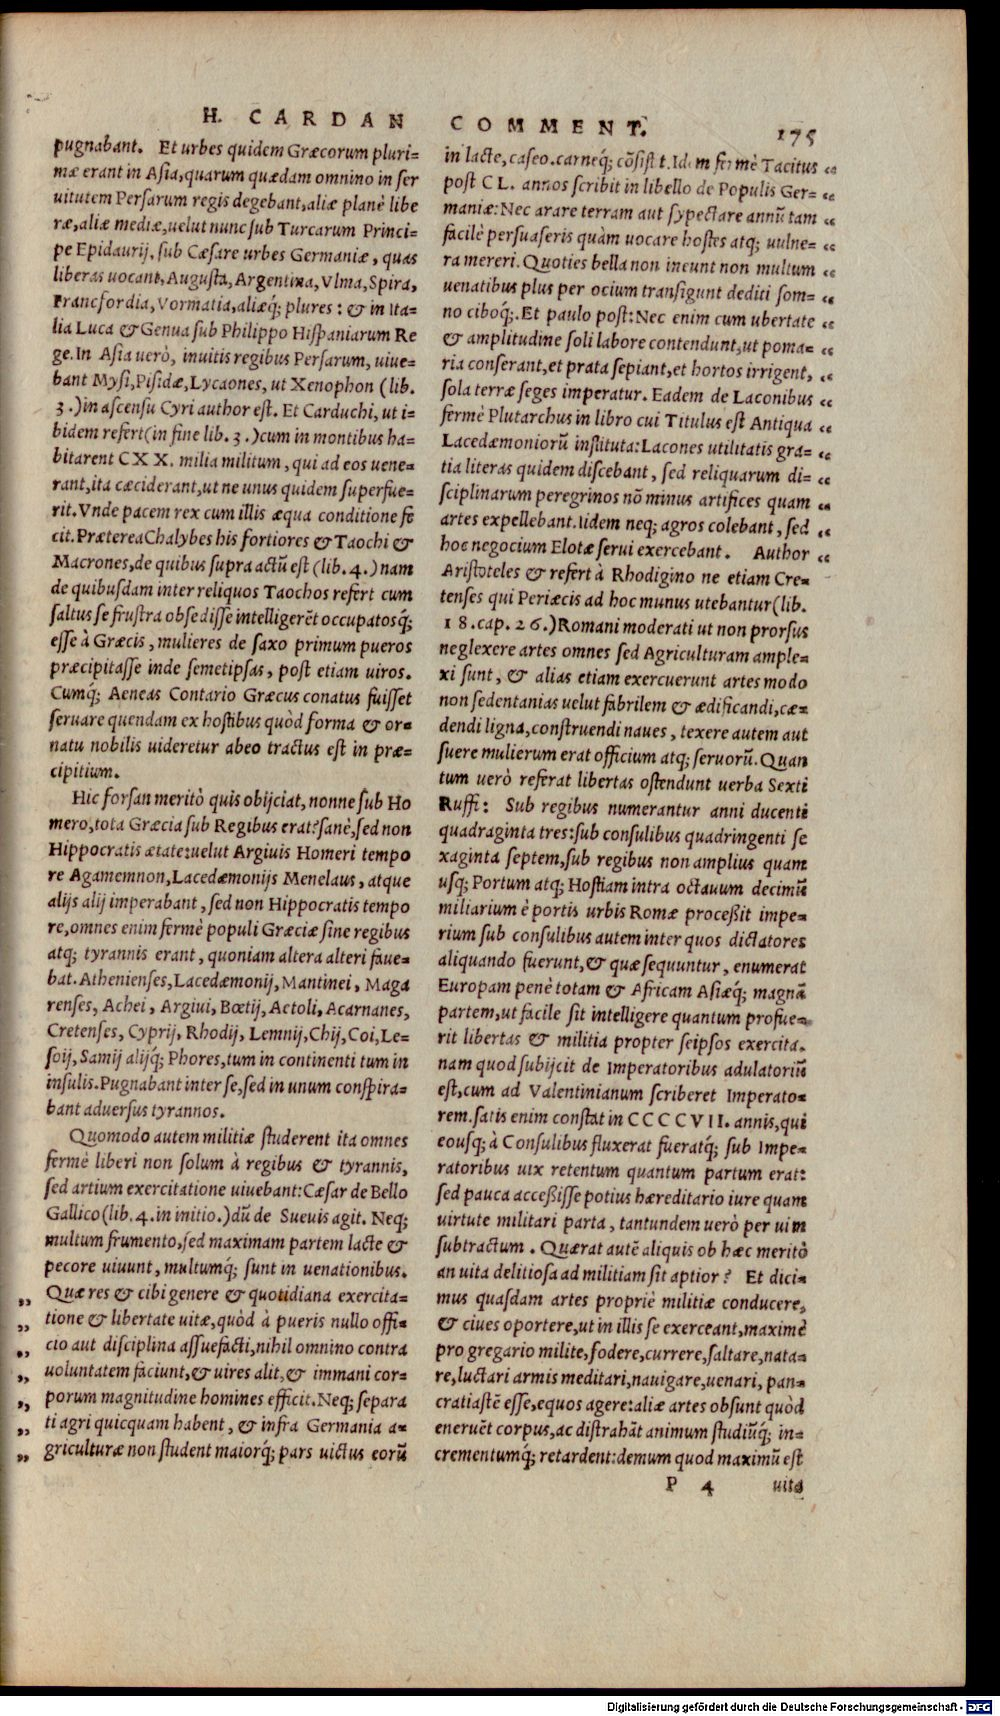 H. CARDAN COMMENT. 175
pugnabant. Et urbes quidem Græcorum pluri=
mæ erant in Asia, quarum quædam omnino in ser
uitutem Persarum regis degebant, aliæ planè libe
ræ, aliæ mediæ, uelut nunc sub Turcarum Princi=
pe Epidaurij, sub Cæsare urbes Germaniæ, quas
liberas uocant, Augusta, Argentina, Vlma, Spira,
Francfordia, Vormatia, aliæq́; plures: & in Ita=
lia Luca & Genua sub Philippo Hispaniarum Re
ge. In Asia uerò, inuitis regibus Persarum, uiue=
bant Mysi, Pisidæ, Lycaones, ut Xenophon (lib.
3.) in ascensu Cyri author est. Et Carduchi, ut i=
bidem refert (in fine lib. 3.) cum in montibus ha=
bitarent CXX. milia militum, qui ad eos uene=
rant, ita cæciderant, ut ne unus quidem superfue=
rit. Vnde pacem rex cum illis æqua conditione fe
cit. Præterea Chalybes his fortiores & Taochi &
Macrones, de quibus supra actũ est (lib. 4.) nam
de quibusdam inter reliquos Taochos refert cum
saltus se frustra obsedisse intelligerẽt occupatosq́;
esse à Græcis, mulieres de saxo primum pueros
præcipitasse inde semetipsas, post etiam uiros.
Cumq́; Aeneas Contario Græcus conatus fuisset
seruare quendam ex hostibus quòd forma & or=
natu nobilis uideretur abeo tractus est in præ=
cipitium.
Hic forsan meritò quis obijciat, nonne sub Ho
mero, tota Græcia sub Regibus erat? sanè, sed non
Hippocratis ætate: uelut Argiuis Homeri tempo
re Agamemnon, Lacedæmonijs Menelaus, atque
alijs alij imperabant, sed non Hippocratis tempo
re, omnes enim fermè populi Græciæ sine regibus
atq; tyrannis erant, quoniam altera alteri faue=
bat. Athenienses, Lacedæmonij, Mantinei, Maga
renses, Achei, Argiui, Bœtij, Aetoli, Acarnanes,
Cretenses, Cyprij, Rhodij, Lemnij, Chij, Coi, Le=
soij, Samij alijq́; Phores, tum in continenti tum in
insulis. Pugnabant inter se, sed in unum conspira=
bant aduersus tyrannos.
Quomodo autem militiæ studerent ita omnes
fermè liberi non solum à regibus & tyrannis,
sed artium exercitatione uiuebant: Cæsar de Bello
Gallico (lib. 4. in initio.) dũ de Sueuis agit. Neq;
multum frumento, sed maximam partem lacte &
pecore uiuunt, multumq́; sunt in uenationibus.
„ Quæ res & cibi genere & quotidiana exercita=
„ tione & libertate uitæ, quòd à pueris nullo offi=
„ cio aut disciplina assuefacti, nihil omnino contra
„ uoluntatem faciunt, & uires alit, & immani cor=
„ porum magnitudine homines efficit. Neq; separa
„ ti agri quicquam habent, & infra Germania a=
„ griculturæ non student maiorq́; pars uictus eorũ
in lacte, caseo. carneq́; cõsist t. Idem fermè Tacitus “
post CL. annos scribit in libello de Populis Ger= “
maniæ: Nec arare terram aut sypectare annũ tam “
facilè persuaseris quàm uocare hostes atq; uulne= “
ra mereri. Quoties bella non ineunt non multum “
uenatibus plus per ocium transigunt dediti som= “
no ciboq́;. Et paulo post: Nec enim cum ubertate “
& amplitudine soli labore contendunt, ut poma= “
ria conserant, et prata sepiant, et hortos irrigent, “
sola terræ seges imperatur. Eadem de Laconibus “
fermè Plutarchus in libro cui Titulus est Antiqua “
Lacedæmoniorũ instituta: Lacones utilitatis gra= “
tia literas quidem discebant, sed reliquarum di= “
sciplinarum peregrinos nõ minus artifices quam “
artes expellebant. Iidem neq; agros colebant, sed “
hoc negocium Elotæ serui exercebant. Author “
Aristoteles & refert à Rhodigino ne etiam Cre=
tenses qui Periæcis ad hoc munus utebantur (lib.
18. cap. 26.) Romani moderati ut non prorsus
neglexere artes omnes sed Agriculturam ample=
xi sunt, & alias etiam exercuerunt artes modo
non sedentanias uelut fabrilem & ædificandi, cæ=
dendi ligna, construendi naues, texere autem aut
suere mulierum erat officium atq; seruorũ. Quan
tum uerò referat libertas ostendunt uerba Sexti
Ruffi: Sub regibus numerantur anni ducenti
quadraginta tres: sub consulibus quadringenti se
xaginta septem, sub regibus non amplius quam
usq; Portum atq; Hostiam intra octauum decimũ
miliarium è portis urbis Romæ proceßit impe=
rium sub consulibus autem inter quos dictatores
aliquando fuerunt, & quæ sequuntur, enumerat
Europam penè totam & Africam Asiæq́; magnã
partem, ut facile sit intelligere quantum profue=
rit libertas & militia propter seipsos exercita.
nam quod subijcit de Imperatoribus adulatoriũ
est, cum ad Valentinianum scriberet Imperato=
rem. satis enim constat in CCCCVII. annis, qui
eousq; à Consulibus fluxerat fueratq́; sub Impe=
ratoribus uix retentum quantum partum erat:
sed pauca acceßisse potius hæreditario iure quam
uirtute militari parta, tantundem uerò per uim
subtractum. Quærat autẽ aliquis ob hæc meritò
an uita delitiosa ad militiam sit aptior? Et dici=
mus quasdam artes propriè militiæ conducere,
& ciues oportere, ut in illis se exerceant, maximè
pro gregario milite, fodere, currere, saltare, nata=
re, luctari armis meditari, nauigare, uenari, pan=
cratiastẽ esse, equos agere: aliæ artes obsunt quòd
eneruẽt corpus, ac distrahãt animum studiũq́; in=
crementumq́; retardent: demum quod maximũ est
P 4 uita
Digitalisierung gefördert durch die Deutsche Forschungsgemeinschaft - DFG